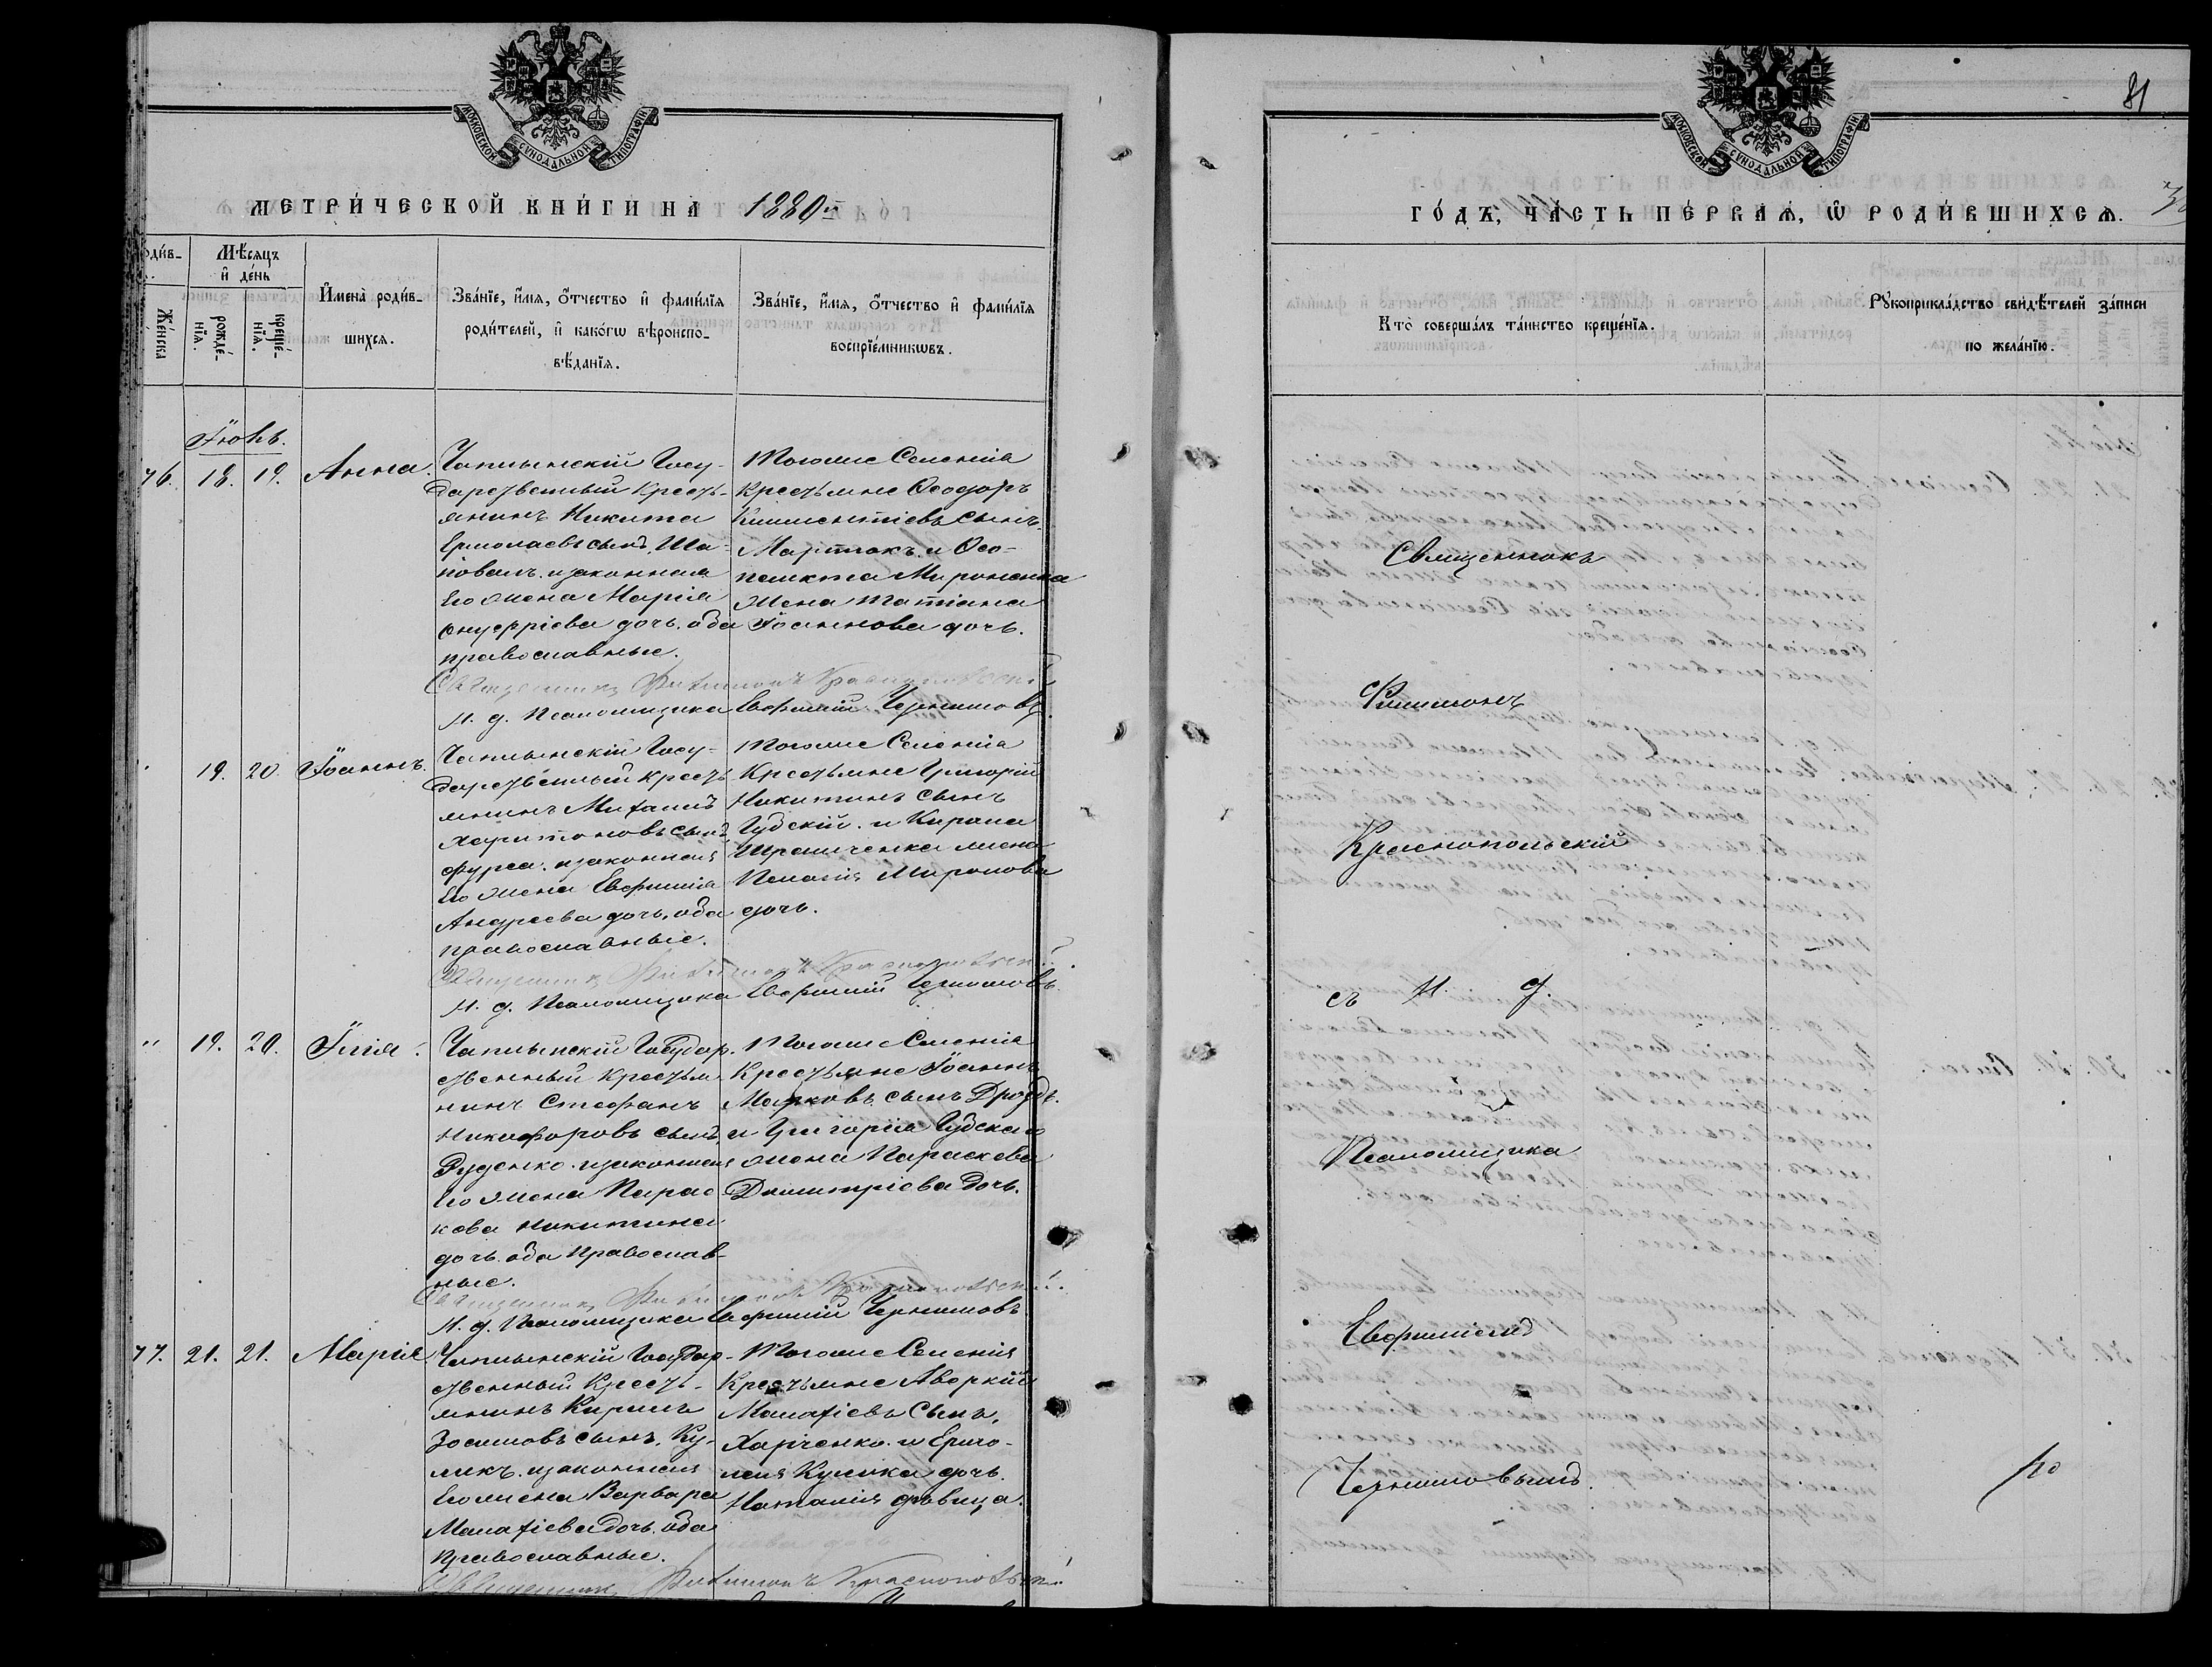 МОСКОВСКОЙ СѴНОДАЛЬНОЙ ТИПОГРАФІИ
МЕТРИ́ЧЕСКОЙ КНИ́ГИ НА 1880й
одив-
Же́нска
Мѣ́сяцъ и҆ де́нь
рожде́-нїѧ.
креще́-нїѧ.
И҆мена̀ роди́в-
шихсѧ.
Зва́нїе, и҆́мѧ, ѻ҆́тчество и҆ фами́лїѧ
роди́телей, и҆ како́гѡ вѣроиспо-
вѣ́данїѧ.
Зва́нїе, и҆́мѧ, ѻ҆́тчество и҆ фами́лїѧ
воспрїе́мникѡвъ.
Іюнь.
76. 18. 19. Анна.
Чаплынскій Госу-
дарственный кресть-
янинъ Никита
Ермолаевъ сынъ, Ша-
повалъ. и законная
его жена Марія
Онуфріева дочь. оба
православные.
Тогоже Селенія
крестьяне Ѳеодоръ
Климентіевъ сынъ.
Мартюкъ. и Ѳео-
пемкта Мироненка
жена Татіана
Іоаннова дочь.
Священникъ Филимонъ Краснопольскій
и. д. Псаломщика Евфимій Чернышовъ.
19. 20. Іоаннъ.
Чаплынскій Госу-
дарственный кресть
янинъ Михаилъ
Харитоновъ сынъ
Фурса. и законная
его жена Евфимія
Андреева дочь, оба
православные.
Тогоже Селенія
Крестьяне Григорій
Никитинъ сынъ
Гудскій. и Кирила
жена
Пелагія Миронова
дочь.
Священникъ Филимонъ Краснопольскій.
и. д. Псаломщика Евфимій Чернышовъ.
" 19. 20. Илія.
Чаплынскій Государ-
ственный крестья
нинъ Стефанъ
Никифоровъ сынъ
Руденко. и законная
его жена Парас
кова Никитина
дочь. оба православ-
ные.
Тогоже Селенія
Крестьяне Іоаннъ
Марковъ сынъ Дроздъ.
и Григорія Гудскаго
жена Параскева
Димитріева дочь.
Священникъ Филимонъ Краснопольскій.
и. д. Псаломщика Евфимій Чернышовъ.
77. 21. 21. Марія.
Чаплынскій Государ-
ственный кресть-
янинъ Кирилъ
Зосимовъ сынъ. Ку-
ликъ. и законная
его жена Варвара
Малахіева дочь. оба
православные.
Тогоже Селенія
Крестьяне Аверкій
Малахіевъ сынъ,
Харченко. и Ермо-
лая Кулика дочь
Наталія дѣвица.
Священникъ Филимонъ Краснопольскій
81
МОСКОВСКОЙ СѴНОДАЛЬНОЙ ТИПОГРАФІИ
ГО́ДЪ, ЧА́СТЬ ПЕ́РВАѦ, Ѡ҆ РОДИ́ВШИХСѦ.
Кто̀ соверша́лъ та́инство креще́нїѧ.
Рꙋкоприкла́дство свидѣ́телей за́писи
по жела́нїю.
Священникъ
Филимонъ
Краснопольскій
съ и. д.
Псаломщика
Евфиміемъ
Чернышовымъ.